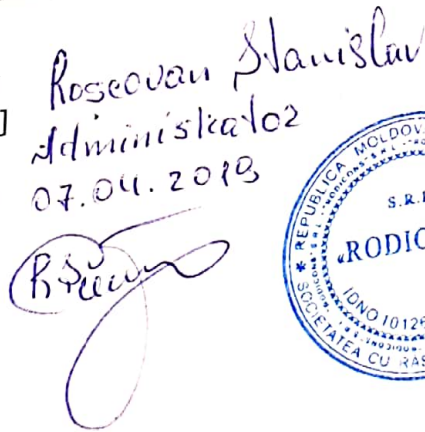 ]
Roscovan Stanislav
Administrator
07.04.2019
REPUBLICA MOLDOV
S.R.
«RODIC
IDNO 10126
SOCIETATEA CU RĂS